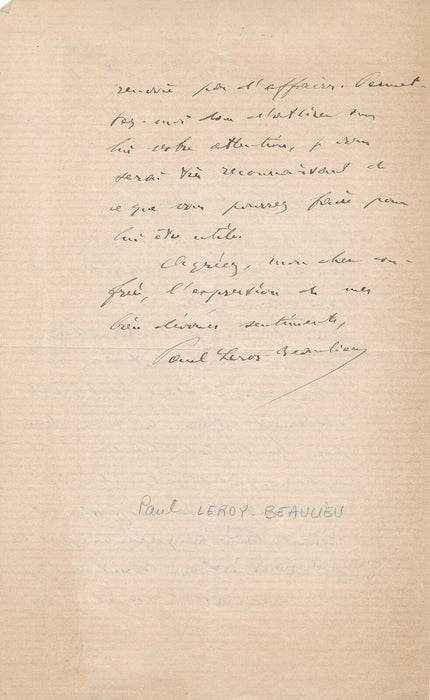 par d'affaires. Permet-
tez-moi donc d'attirer sur
lui votre attention, je vous
serai très reconnaissant de
ce que vous pourrez faire pour
lui être utile.
Agréez, mon cher con-
frère, l'expression de mes
bien dévoués sentiments,
Paul Leroy-Beaulieu
Paul LEROY-BEAULIEU